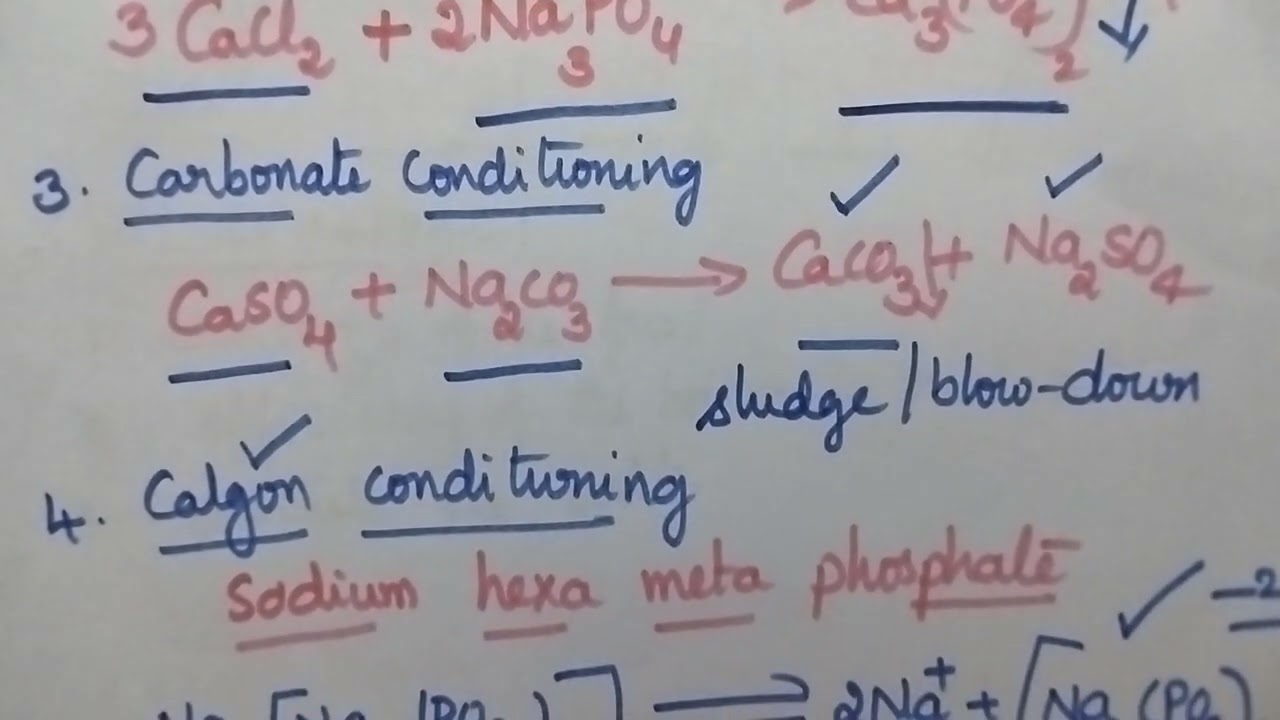 3 CaCl₂ + 2Na₃PO₄ → Ca₃(PO₄)₂ ↓
3. Carbonate conditioning
CaSO₄ + Na₂CO₃ → CaCO₃↓ + Na₂SO₄
sludge / blow-down
4. Calgon conditioning
Sodium hexa meta phosphate
-2
2Na⁺ + [Na (PO